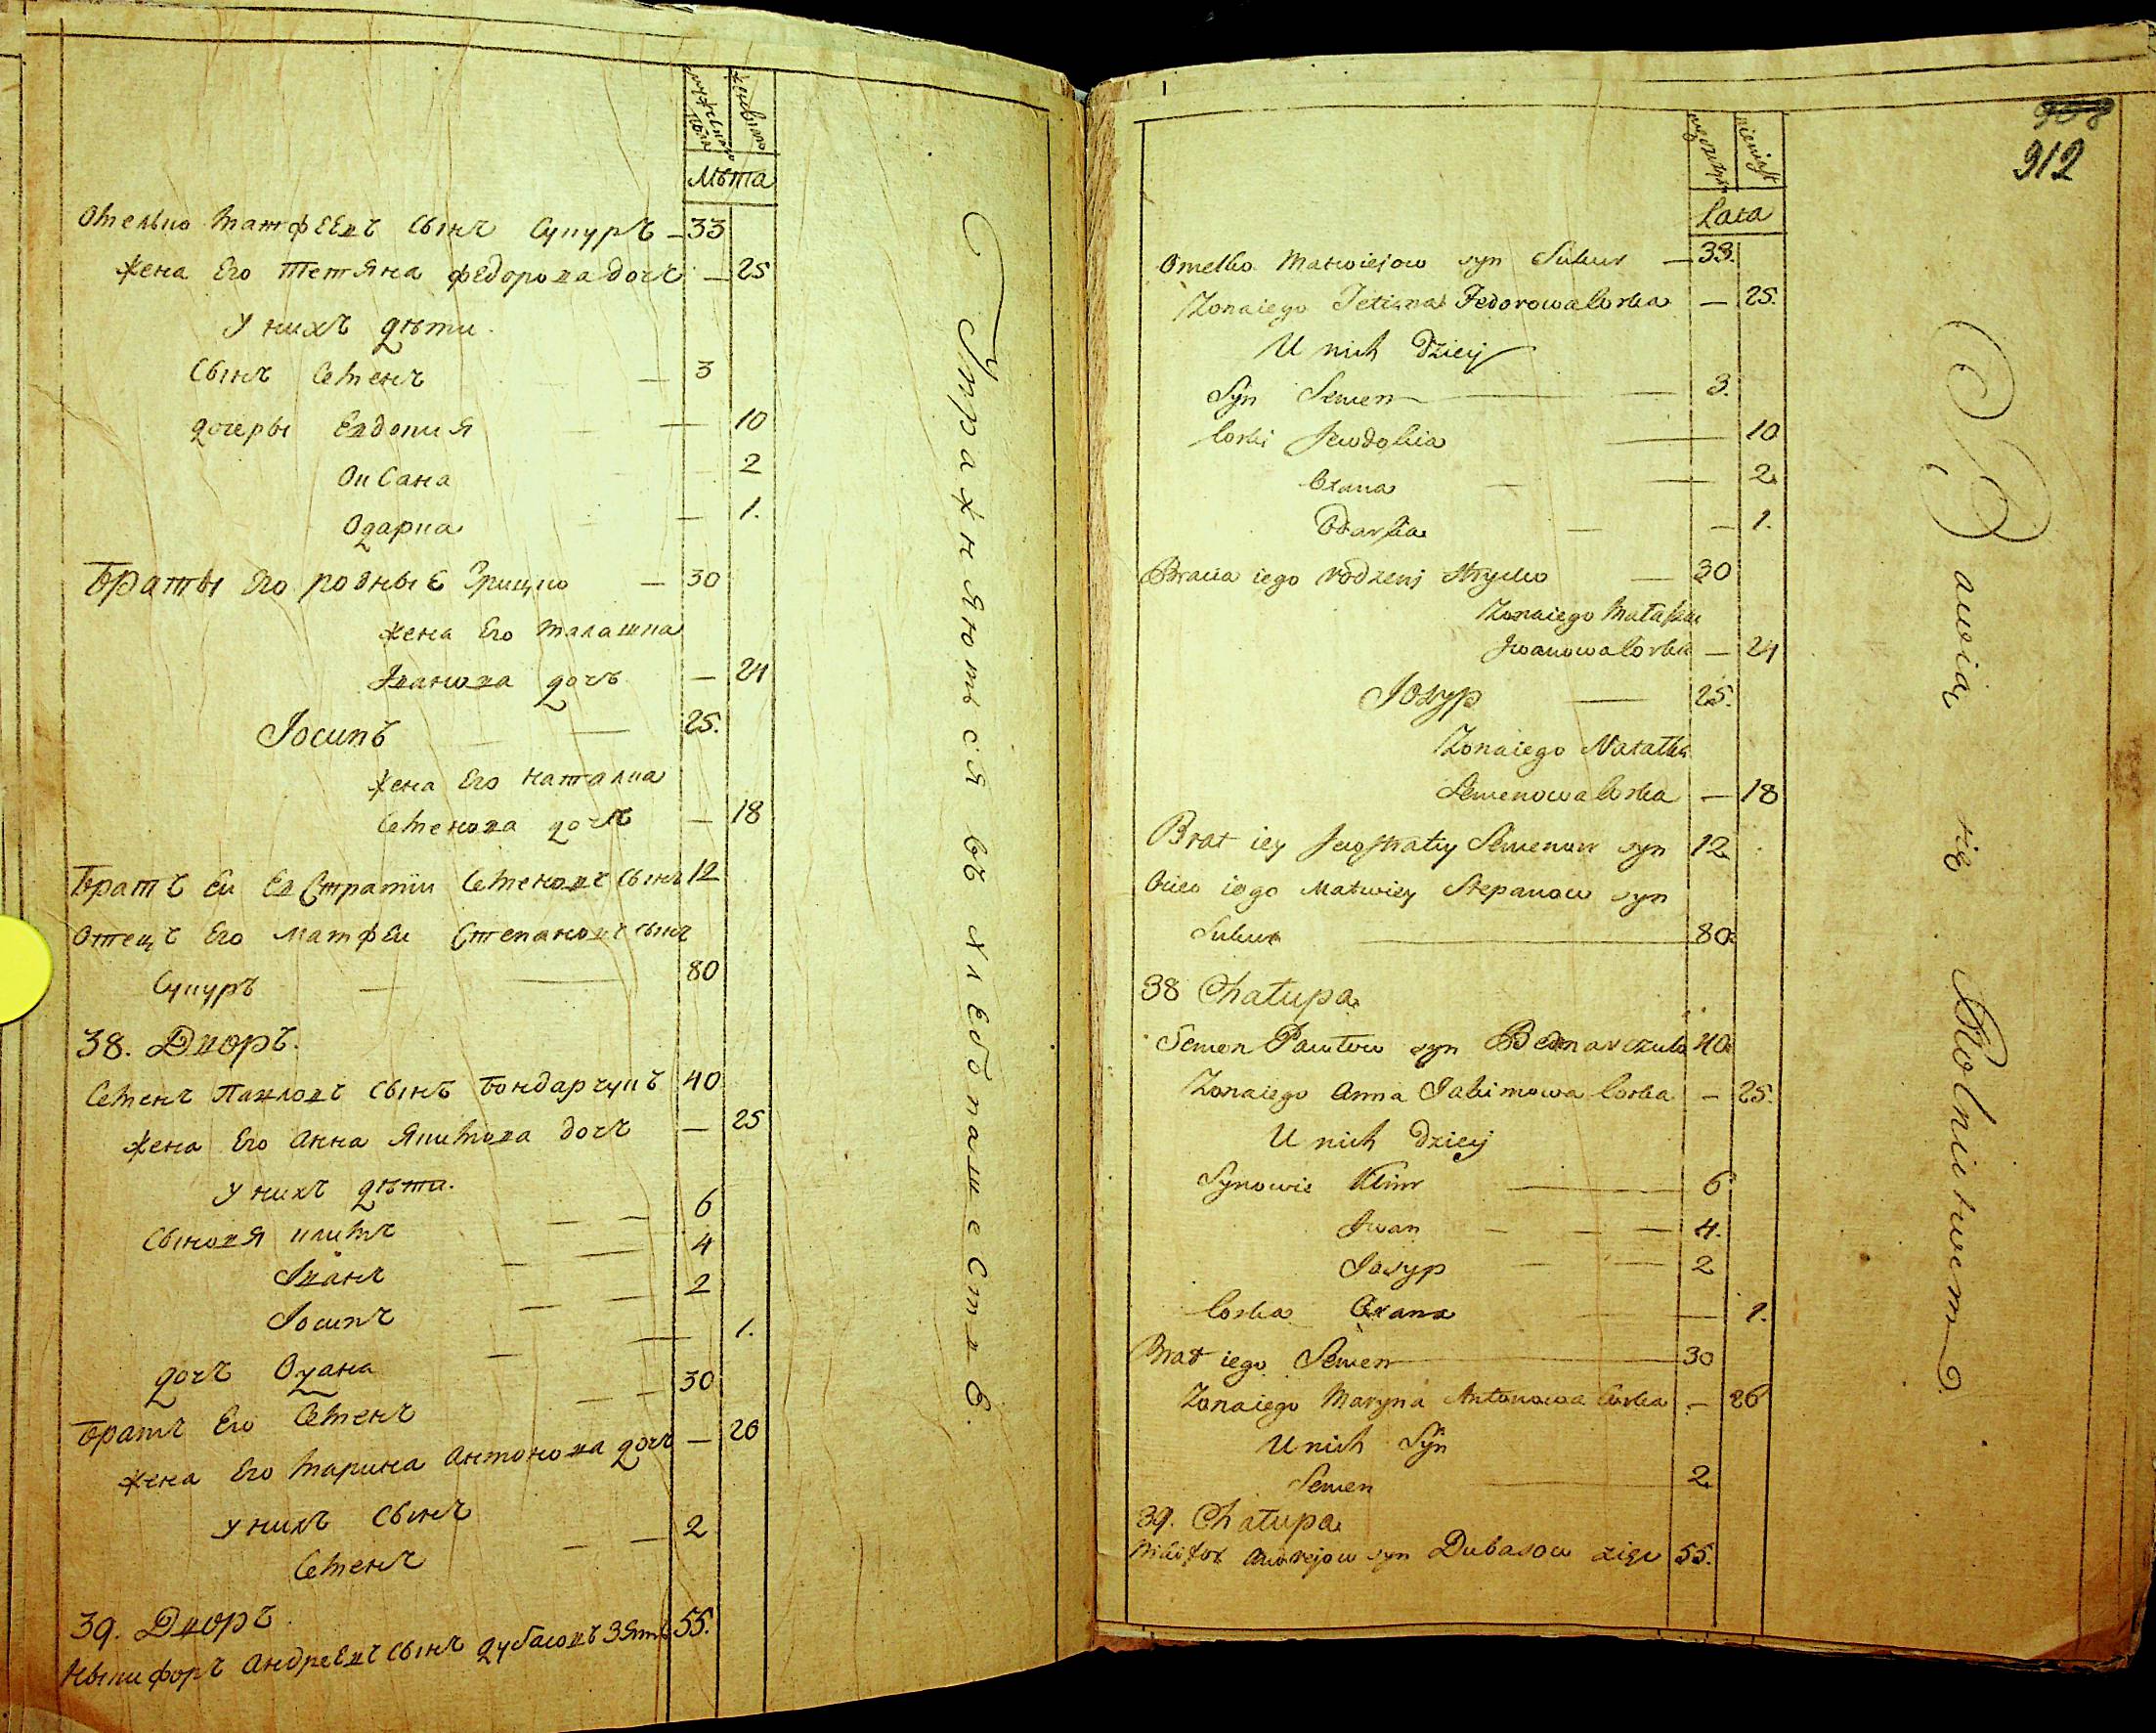 мужеска
женска
Лѣта
Омелько Матфеевъ сынъ Сукуръ — 33
жена Его Тетяна Федорова дочь — 25
У нихъ дѣти.
Сынъ Семенъ — 3
дочеры Евдокия — 10
Оксана 2
Одарка — 1.
Братьы Его родные Грицко — 30
жена Его Малашка
Іванова дочь — 24
Іосипъ — 25.
жена Его Наталка
Семенова дочь — 18
Братъ Еи Евстратіи Семеновъ сынъ 12
Отецъ Его Матфеи Степановъ сынъ
Сукуръ — 80
38. Дворъ.
Семенъ Павловъ сынъ Бондарчукъ 40
жена Его Анна Якимова дочь — 25
У нихъ дѣти.
Сыновя Климъ — 6
Іванъ — 4
Іосипъ — 2
дочь Оксана — 1.
Братъ Его Семенъ — 30
жена Его Марина Антонова дочь — 26
У нихъ сынъ
Семенъ — 2
39. Дворъ.
Никифоръ Андреевъ сынъ Дубасовъ зять 55.
Упражняются въ хлебопашествѣ.
908
912
męszczyzn
kobiet
Lata
Omelko Matwiejow syn Sukur — 33.
Zona iego Tetiana Fedorowa Corka — 25.
U nich dziecy
Syn Semen — 3.
Corki Jewdokia — 10
Oxana — 2.
Odarka — 1.
Bracia iego rodzeni Hrycko — 30
Zona iego Małaszka
Jwanowa Corka — 24
Josyp — 25.
Zona iego Natałka
Semenowa Corka — 18
Brat iey Jewstratiy Semenow syn 12.
Ociec iego Matwiey Stepanow syn
Sukur — 80.
38 Chałupa.
Semen Pawłow syn Bednarczuk 40.
Zona iego Anna Jakimowa Corka — 25.
U nich dziecy
Synowie Klim — 6
Jwan — 4.
Josyp — 2
Corka Oxana — 1.
Brat iego Semen — 30
Zona iego Maryna Antonowa Corka — 26
U nich Syn
Semen — 2
39. Chałupa.
Nikifor Andrejow syn Dubasow zięc 55.
Bawią się Rolnictwem.